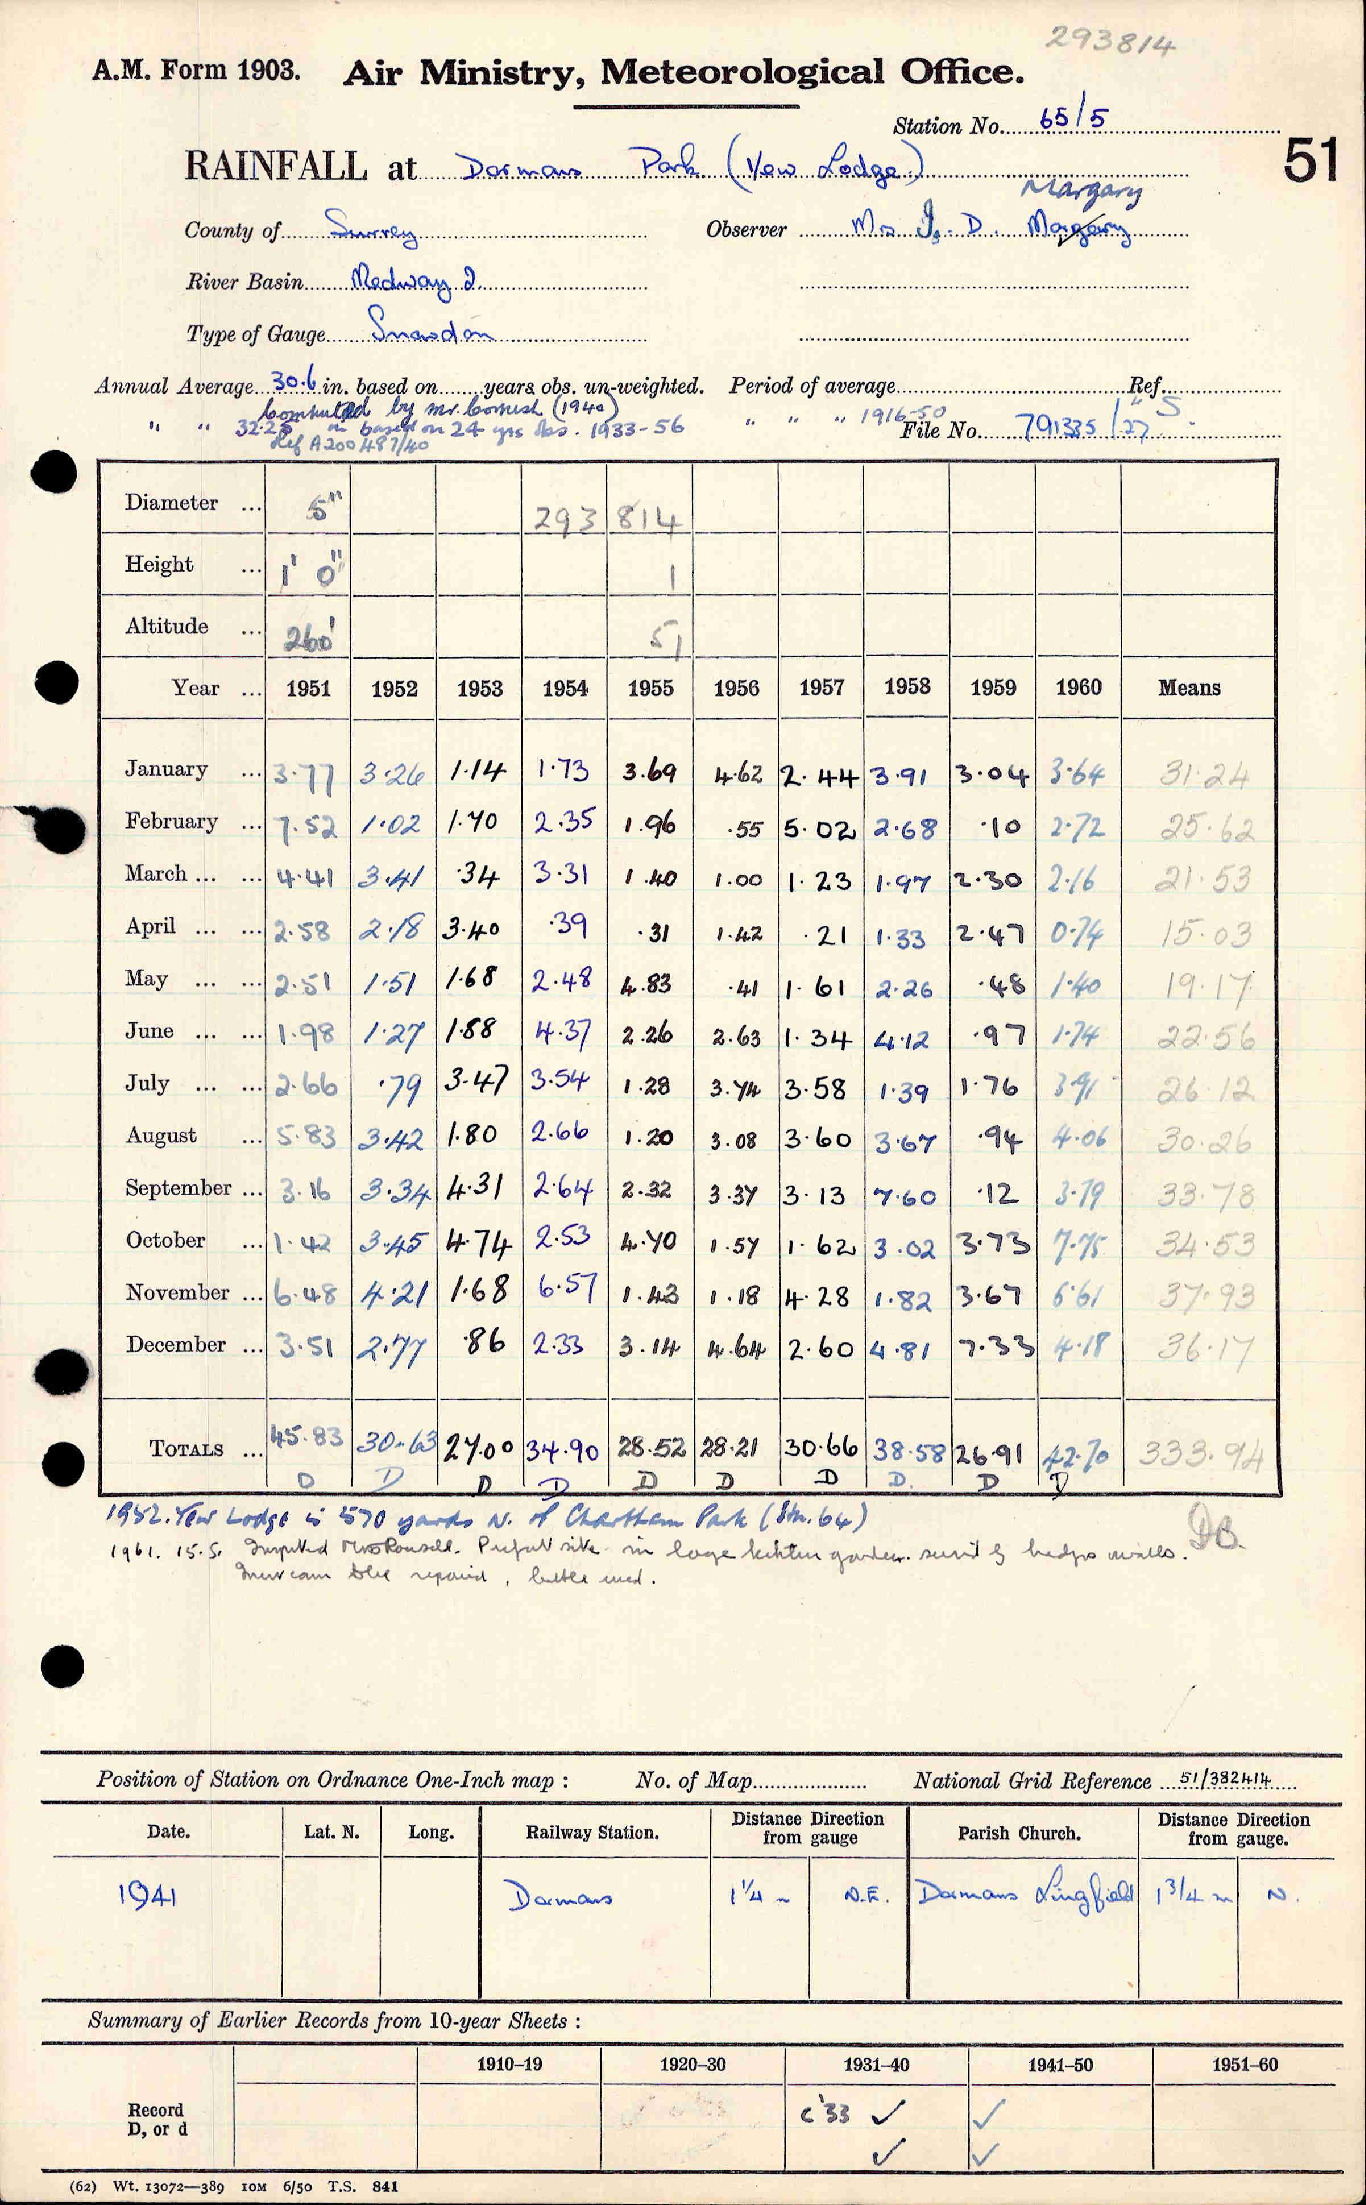 293814
A.M. Form 1903. Air Ministry, Meteorological Office.
Station No. 65/5
51
RAINFALL at Dormans Park (Yew Lodge)
Margary
County of Surrey Observer Mrs I. D. Margary
River Basin Medway 2.
Type of Gauge Snowdon
Annual Average 30.6 in. based on years obs. un-weighted. Period of average Ref.
Computed by Mr. Cornish (1940) 1916-50 " S
" " 32.25 in based on 24 yrs obs. 1933-56 " " " File No. 791335/27
Ref A200487/40
Diameter ... 5" 293 814
Height ... 1' 0" 1
Altitude ... 260' 51
Year ... 1951 1952 1953 1954 1955 1956 1957 1958 1959 1960 Means
January ... 3.77 3.26 1.14 1.73 3.69 4.62 2.44 3.91 3.04 3.64 31.24
February ... 7.52 1.02 1.70 2.35 1.96 .55 5.02 2.68 .10 2.72 25.62
March ... ... 4.41 3.41 .34 3.31 1.40 1.00 1.23 1.97 2.30 2.16 21.53
April ... ... 2.58 2.18 3.40 .39 .31 1.42 .21 1.33 2.47 0.74 15.03
May ... ... 2.51 1.51 1.68 2.48 4.83 .41 1.61 2.26 .48 1.40 19.17
June ... ... 1.98 1.27 1.88 4.37 2.26 2.63 1.34 4.12 .97 1.74 22.56
July ... ... 2.66 .79 3.47 3.54 1.28 3.74 3.58 1.39 1.76 3.91 26.12
August ... 5.83 3.42 1.80 2.66 1.20 3.08 3.60 3.67 .94 4.06 30.26
September ... 3.16 3.34 4.31 2.64 2.32 3.37 3.13 7.60 .12 3.79 33.78
October ... 1.42 3.45 4.74 2.53 4.70 1.57 1.62 3.02 3.73 7.75 34.53
November ... 6.48 4.21 1.68 6.57 1.43 1.18 4.28 1.82 3.67 6.61 37.93
December ... 3.51 2.77 .86 2.33 3.14 4.64 2.60 4.81 7.33 4.18 36.17
TOTALS ... 45.83 30.63 27.00 34.90 28.52 28.21 30.66 38.58 26.91 42.70 333.94
D D D D D D D D. D D
1952. Yew Lodge is 570 yards N. of Chartham Park (Stn. 64)
1961. 15.5. Inspected Mrs in large kitchen garden. hedges walls.
repaired, bottle used.
Position of Station on Ordnance One-Inch map : No. of Map National Grid Reference 51/382414
Date. Lat. N. Long. Railway Station. Distance Direction from gauge Parish Church. Distance Direction from gauge.
1941 Dormans 1 1/4 m N.E. Dormans Lingfield 1 3/4 m N.
Summary of Earlier Records from 10-year Sheets :
1910–19 1920–30 1931–40 1941–50 1951–60
Record D, or d c '33 ✓ ✓
✓ ✓
(62) Wt. 13072—389 10M 6/50 T.S. 841